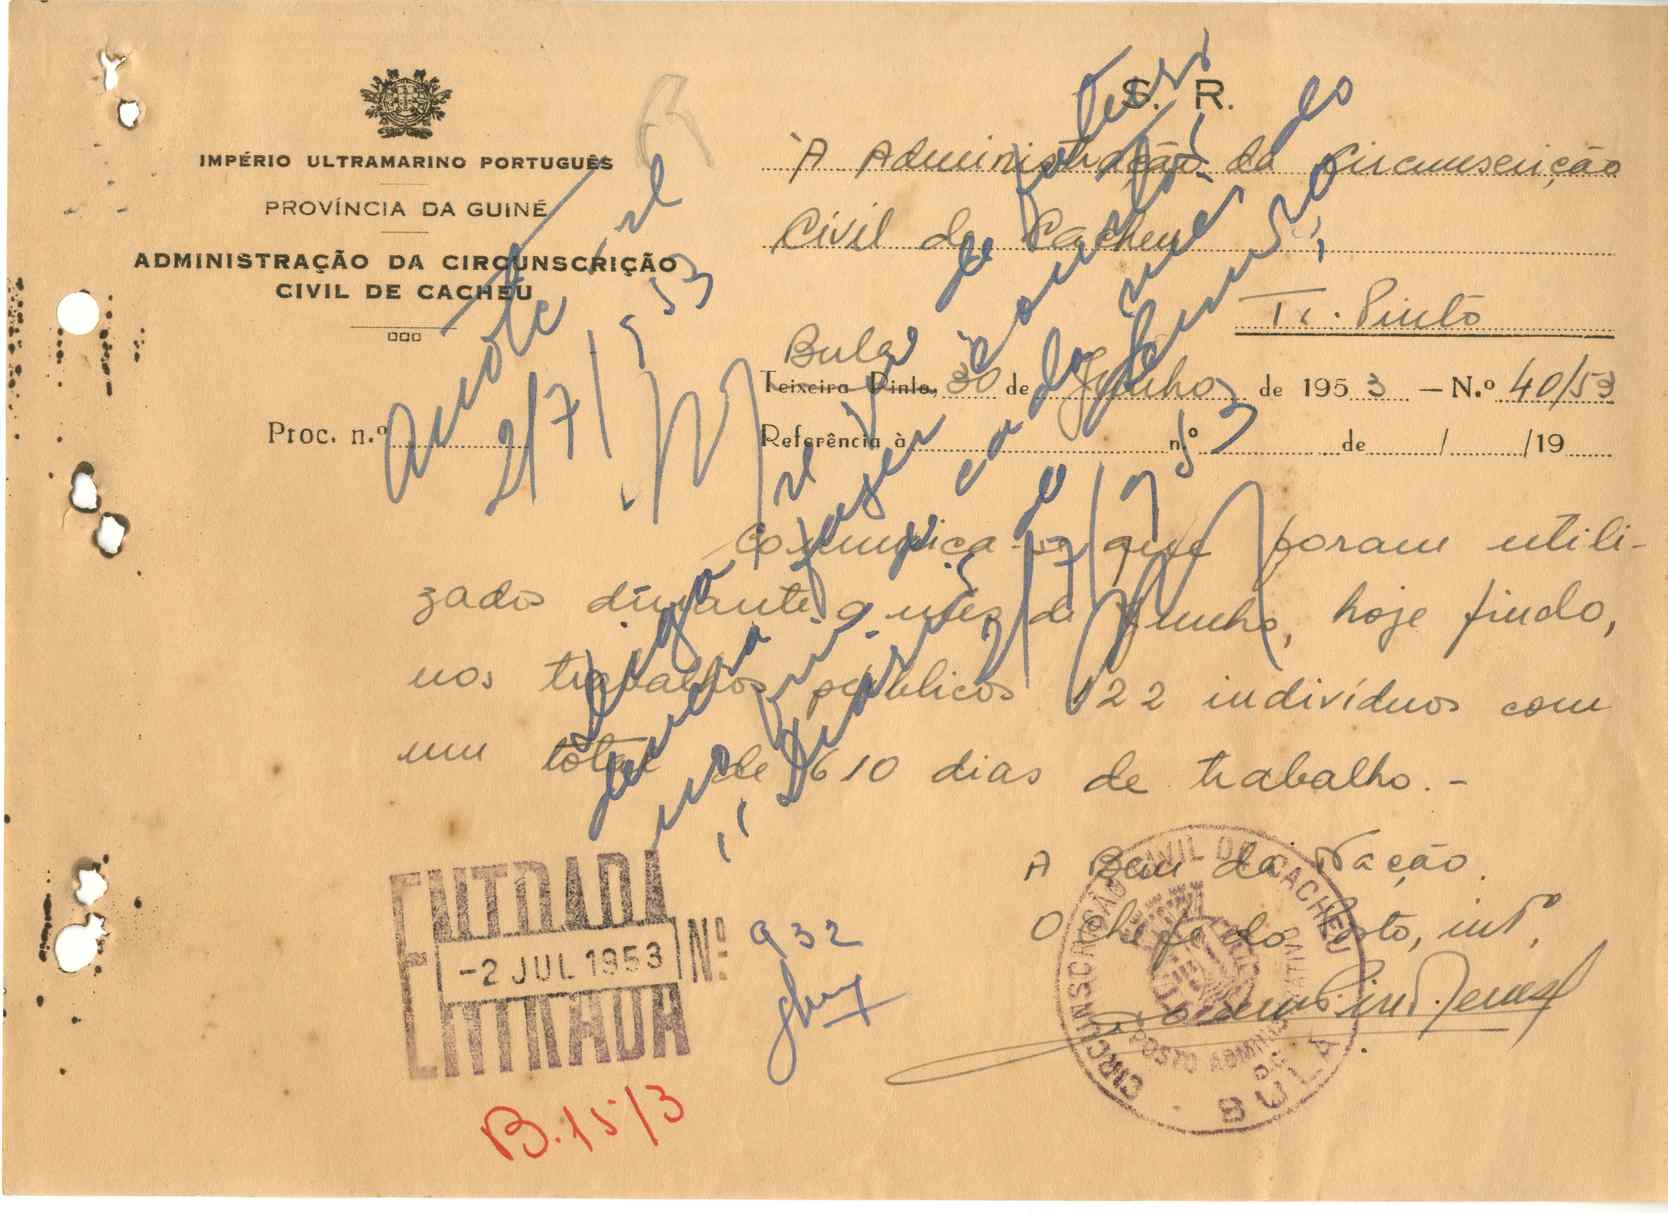 IMPÉRIO ULTRAMARINO PORTUGUÊS
PROVÍNCIA DA GUINÉ
ADMINISTRAÇÃO DA CIRCUNSCRIÇÃO
CIVIL DE CACHEU
Proc. n.º
S. R.
À Administração da Circunscrição
Civil de Cacheu
T. Pinto
Bula
Teixeira Pinto, 30 de Junho de 1953 — N.º 40/53
Referência à n.º de / /19
Comunica-se que foram utili-
zados durante o mês de Junho, hoje findo,
nos trabalhos públicos 122 indivíduos com
um total de 610 dias de trabalho. -
A Bem da Nação.
O Chefe do Posto, intº,
Anote-se
2/7/953
Diga-se que de futuro
deverá fazer constar
no fim de cada mês do
2/7/953
ENTRADA
-2 JUL 1953 Nº 932
ENTRADA
B.15/3
CIRCUNSCRISÃO CIVIL DE CACHEU
POSTO ADMINISTRATIVO
DE
BULA